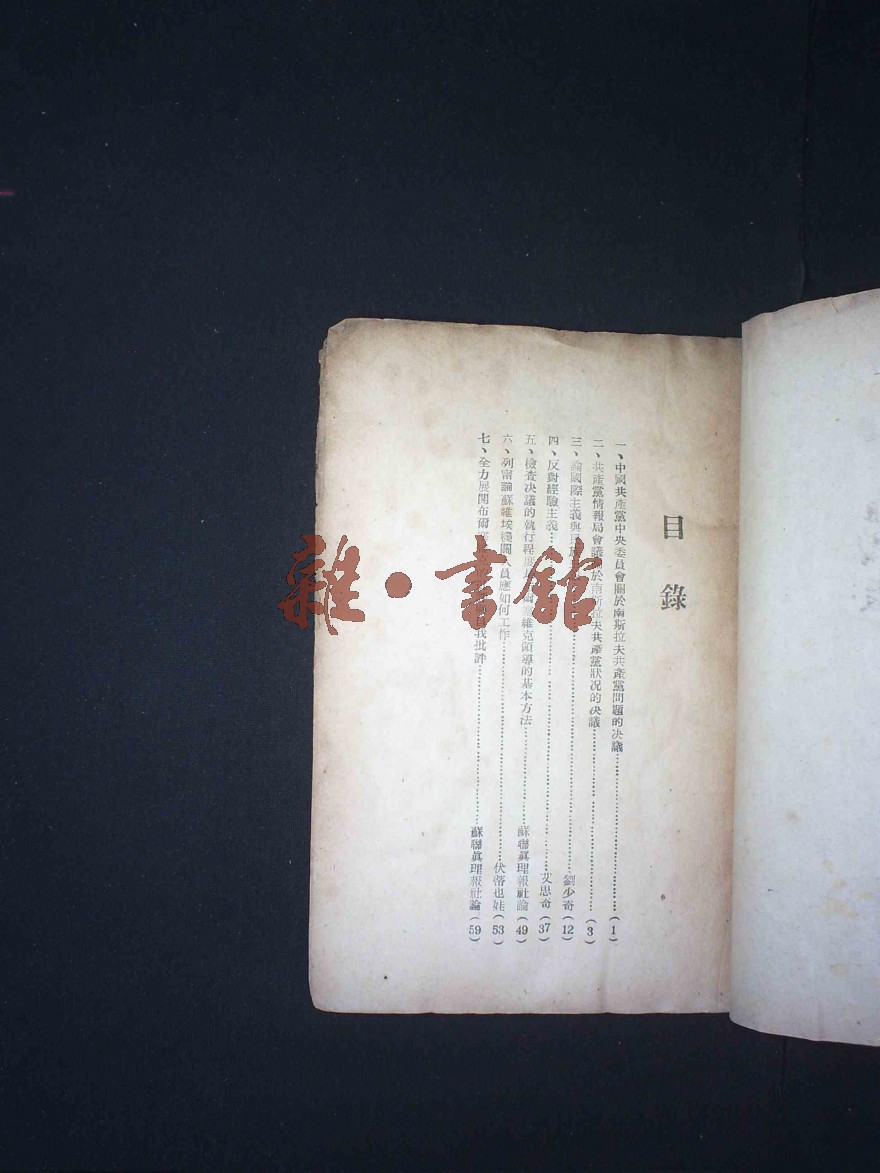 目錄
一、中國共產黨中央委員會關於南斯拉夫共產黨問題的决議……(1)
二、共產黨情報局會議 於南斯拉夫共產黨狀况的决議……(3)
三、論國際主義與民族……劉少奇(12)
四、反對經驗主義……艾思奇(37)
五、檢查决議的執行程度是 爾塞維克領導的基本方法……蘇聯眞理報社論(49)
六、列甯論蘇維埃機關人員應如何工作……伏諾也娃(53)
七、全力展開布爾 自我批評……蘇聯眞理報社論(59)
雜·書館